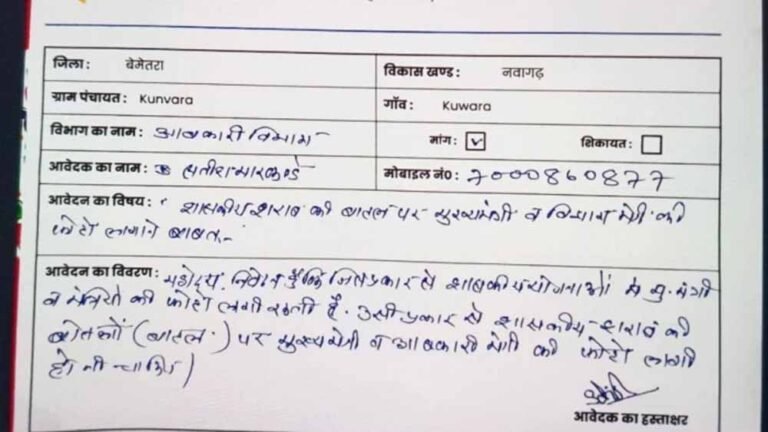 जिला : बेमेतरा
विकास खण्ड : नवागढ़
ग्राम पंचायत : Kunvara
गाँव : Kuwara
विभाग का नाम : आबकारी विभाग
मांग : ✓ शिकायत :
आवेदक का नाम : सतीश मारकण्डे
मोबाइल नं० : 7000860877
आवेदन का विषय : शासकीय शराब की बाटल पर मुख्यमंत्री व विभाग मंत्री की
फोटो लगाने बाबत् -
आवेदन का विवरण : महोदय, निवेदन है कि जिस प्रकार से शासकीय योजनाओं में मु. मंत्री
व मंत्रियों की फोटो लगी रहती है. उसी प्रकार से शासकीय शराब की
बोतलों (बाटल) पर मुख्यमंत्री व आबकारी मंत्री की फोटो लगनी
होनी चाहिए।
आवेदक का हस्ताक्षर